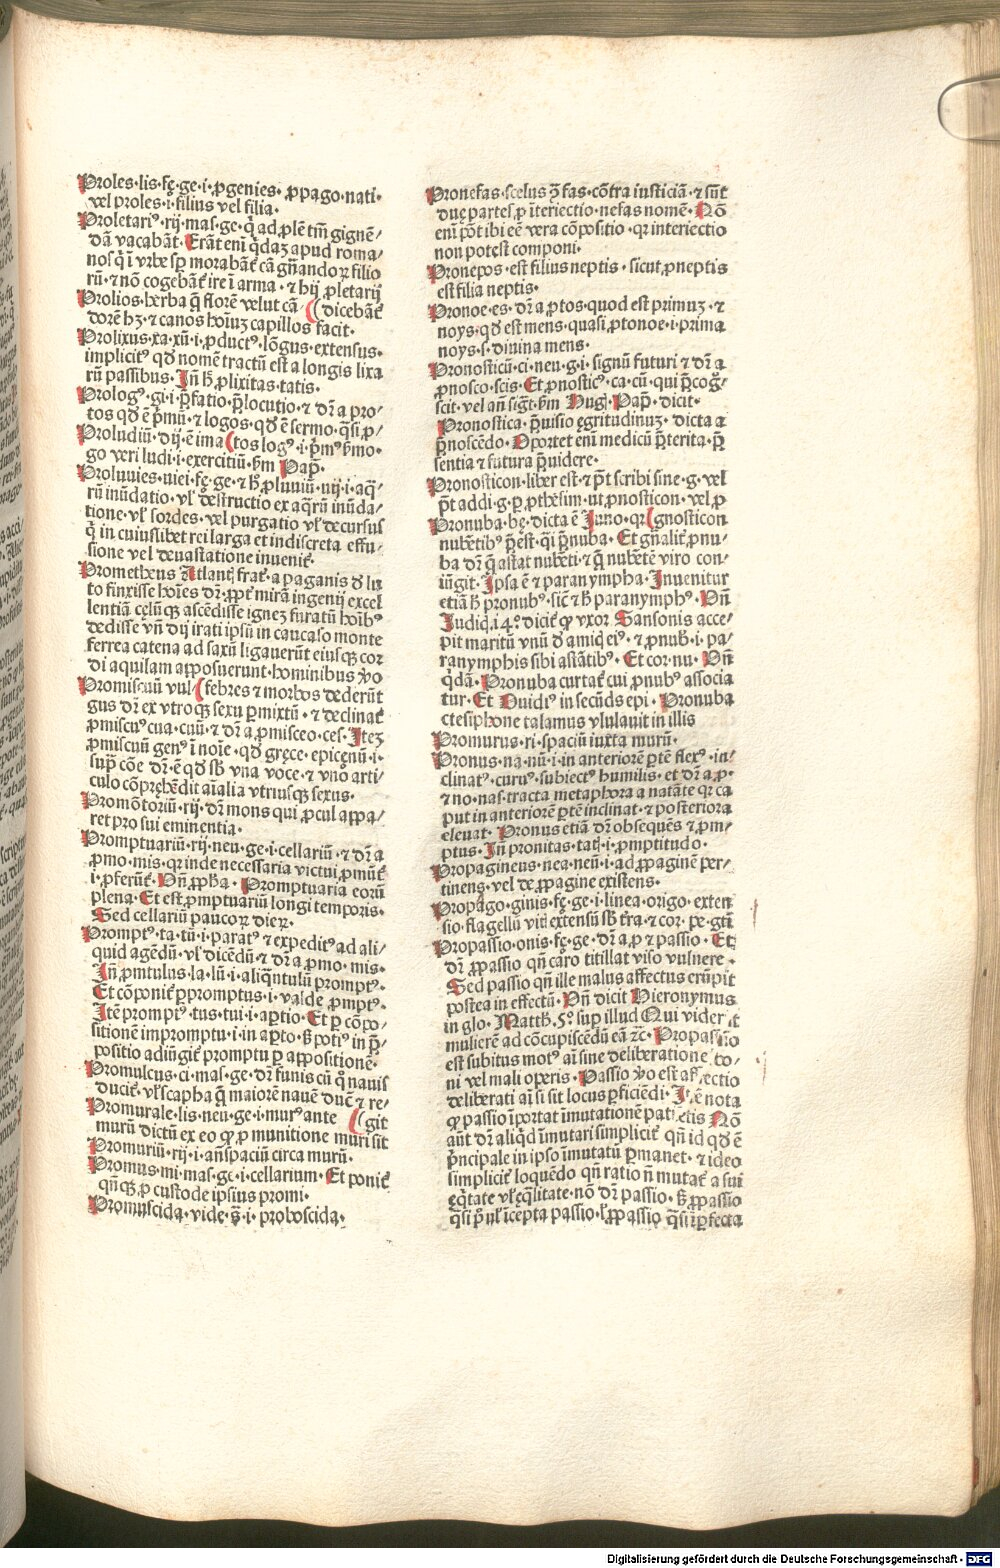 Proles·lis·fę·ge·i·ꝓgenies· ꝓpago·nati·
vel proles·i·filius vel filia·
Proletariꝰ·rij·mas·ge·q̇ ad ꝓlē tm̄ gignē/
dā vacabāt· Erāt eni q̇daꝫ apud roma/
nos q̇ ī vrbe sꝑ morabāt̄ cā gn̄andoꝝ filio
rū·⁊ nō cogebāt̄ ire ī arma·⁊ hij ꝓletarij
Prolios·herba q̄ florē velut cā (dicebāt̄
dorē hꝫ·⁊ canos hoīuꝫ capillos facit·
Prolixus·xa·xū·i·ꝓductꝰ·lōgus·extensus·
implicitꝰ qd̄ nomē tractū est a longis lixa
rū passibus· Jn̄ h̄ ꝓlixitas·tatis·
Prologꝰ·gi·i·p̄fatio·p̄locutio·⁊ dr̄ a pro/
tos qd̄ ē p̄mū·⁊ logos·qd̄ ē sermo·q̄si ꝓ/
Proludiū·dij·ē ima (tos logꝰ·i·p̄mꝰ ẜmo·
go veri ludi·i·exercitiū·ẜm Pap̄·
Proluvies·uiei·fę·ge·⁊ h̄ ꝓluviū·uij·i·aq̄/
rū inūdatio·vl̓ destructio ex aq̄rū inūda/
tione·vl̓ sordes·vel purgatio vl̓ decursus
q̇ in cuiuslibet rei larga et indiscreta effu/
sione vel deuastatione inuenit̄·
Prometheus Atlantꝭ frat̄·a paganis d̄ lu
to finxisse hoīes dr̄·ꝓpt̄ mirā ingenij excel
lentiā cęlūqꝫ ascēdisse igneꝫ furatū hoībꝰ
dedisse vn̄ dij irati ipsū in caucaso monte
ferrea catena ad saxū ligauerūt eiusqꝫ cor
di aquilam apposuerunt·hominibus ꝟo
Promiscuū vul (febres ⁊ morbos dederūt
gus dr̄ ex vtroqꝫ sexu ꝑmixtū·⁊ declinat̄
ꝓmiscuꝰ cua·cuū·⁊ dr̄ a ꝓmisceo·ces· Jteꝫ
ꝓmiscuū genꝰ ī noīe·qd̄ gręce·epicenū·i·
sup̄ cōe dr̄·ē qd̄ sb̄ vna voce·⁊ vno arti/
culo cōprehēdit aīalia vtriusqꝫ sexus·
Promōtoriū·rij·dr̄ mons qui ꝓcul appa/
ret pro sui eminentia·
Promptuariū·rij·neu·ge·i·cellariū·⁊ dr̄ a
ꝓmo·mis·qꝛ inde necessaria victui ꝓmūt̄
i·ꝓferūt̄· Vn̄ ꝓpha· Promptuaria eorū
plena· Et est ꝓmptuariū longi temporis·
Sed cellariū paucoꝝ dieꝝ·
Promptꝰ·ta·tū·i·paratꝰ ⁊ expeditꝰ ad ali/
quid agēdū·vl̓ dicēdū·⁊ dr̄ a ꝓmo·mis·
Jn̄ ꝓmtulus·la·lū·i·aliq̄ntulū promptꝰ·
Et cōponit̄ ꝑpromptus·i·valde ꝓmptꝰ·
Jtē promptꝰ·tus·tui·i·aꝑtio· Et ꝑ cōpo/
sitionē impromptu·i·in aꝑto·s̄ potiꝰ in p̄/
positio adiūgit̄ promptu ꝑ appositionē·
Promulcus·ci·mas·ge·dr̄ funis cū q̊ nauis
ducit̄·vl̓ scapha q̄ maiorē nauē duc̄ ⁊ re/
Promurale·lis·neu·ge·i·murꝰ ante (git
murū dictū ex eo qꝙ ꝓ munitione muri sit
Promuriū·rij·i·an̄spaciū circa murū·
Promus·mi·mas·ge·i·cellarium· Et ponit̄
qn̄qꝫ ꝓ custode ipsius promi·
Promuscida·vide·s̄·i·proboscida·
Pronefas·scelus ꝙ̄ fas·cōtra iusticiā·⁊ sūt
duę partes ꝓ īteriectio·nefas nomē· Nō
eni p̄ōt ibi eē vera cōpositio·qꝛ interiectio
non potest componi·
Pronepos·est filius neptis·sicut ꝓneptis
est filia neptis·
Pronoe·es·dr̄ a ꝓtos·quod est primuꝫ·⁊
noys·qd̄ est mens·quasi ꝓtonoe·i·prima
noys·s·diuina mens·
Pronosticū·ci·neu·g·i·signū futuri ⁊ dr̄ a
ꝓnosco·scis· Et ꝓnosticꝰ·ca·cū·qui p̄cog̊/
scit·vel an̄ sigt̄·ẜm Hugꝭ Pap̄·dicit·
Pronostica·p̄uisio ęgritudinuꝫ·dicta a
p̄noscēdo· Oportet eni medicū p̄terita·p̄
sentia ⁊ futura p̄uidere·
Pronosticon·liber est·⁊ p̄t scribi sine·g·vel
p̄t addi·g·ꝑ ꝓthesim·ut ꝓnosticon·vel ꝓ
Pronuba·bę·dicta ē Juno·qꝛ (gnosticon
nubētibꝰ p̄est·q̄i p̄nuba· Et gn̄alit̄ ꝓnu/
ba dr̄ q̄ astat nubēti·⁊ q̄ nubētē viro con/
iūgit· Jpsa ē ⁊ paranympha· Jnuenitur
etiā h̄ pronubꝰ·sic̄ ⁊ h̄ paranymphꝰ· Vn̄
Judiq̄·14·⁰ dicit̄ ꝙ vxor Sansonis acce/
pit maritū vnū d̄ amicꝭ eiꝰ·⁊ ꝓnubꝭ·i·pa/
ranymphis sibi astātibꝰ· Et cor·nu· Vn̄
q̇dā· Pronuba curtat̄ cui ꝓnubꝰ associa
tur· Et Ouidiꝰ in secūdꝭ epi· Pronuba
ctesiphone talamus vlulauit in illis
Promurus·ri·spaciū iuxta murū·
Pronus·na·nū·i·in anteriorē ꝑtē flexꝰ·in/
clinatꝰ·curuꝰ·subiectꝰ humilis·et dr̄ a·ꝓ·
⁊ no·nas·tracta metaphora a natāte qꝛ ca
put in anteriorē ꝑtē inclinat·⁊ posteriora
eleuat· Pronus etiā dr̄ obsequēs ⁊ ꝓm/
ptus· Jn̄ pronitas·tatꝭ·i·ꝓmptitudo·
Propagineus·nea·neū·i·ad ꝓpaginē per/
tinens·vel de ꝓpagine existens·
Propago·ginis·fę·ge·i·linea·origo·exten
sio·flagellū vitꝭ extensū sb̄ t̄ra·⁊ cor·pe·gt̄i
Propassio·onis·fę·ge·dr̄ a ꝓ ⁊ passio· Et
dr̄ ꝓpassio qn̄ caro titillat viso vulnere·
Sed passio qn̄ ille malus affectus erūpit
postea in effectū· Vn̄ dicit Hieronymus
in glo· Matth·5⁰ suꝑ illud Qui viderit
mulierē ad cōcupiscēdū eā ⁊c̄· Propassio
est subitus motꝰ aī sine deliberatione bo·
ni vel mali operis· Passio ꝟo est affectio
deliberati aī si sit locus ꝑficiēdi· Jtē nota
ꝙ passio īportat īmutationē patiētis Nō
aūt dr̄ aliqd̄ īmutari simplicit̄ qn̄ id qd̄ ē
p̄ncipale in ipso īmutatū ꝑmanet·⁊ ideo
simplicit̄ loquēdo qn̄ ratio n̄ mutat̄ a sui
ęq̄tate vl̓ ęq̄litate·nō dr̄ passio·s̄ ꝓpassio
q̄si p̄ vl̓ īcepta passio·l̓ ꝓpassio q̄si īꝑfecta
Digitalisierung gefördert durch die Deutsche Forschungsgemeinschaft - DFG